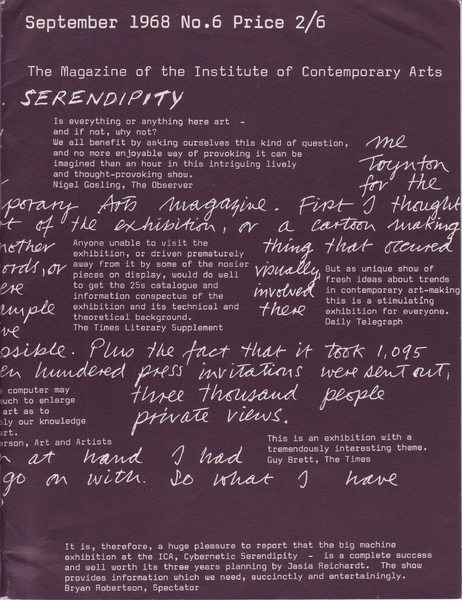 September 1968 No.6 Price 2/6
The Magazine of the Institute of Contemporary Arts
SERENDIPITY
Is everything or anything here art -
and if not, why not?
We all benefit by asking ourselves this kind of question,
and no more enjoyable way of provoking it can be
imagined than an hour in this intriguing lively
and thought-provoking show.
Nigel Gosling, The Observer
me
Toynton
for the
porary Arts magazine. First I thought
t of the exhibition, or a cartoon making
nother
ords, or
ere
ample
ve
Anyone unable to visit the
exhibition, or driven prematurely
away from it by some of the nosier
pieces on display, would do well
to get the 25s catalogue and
information conspectus of the
exhibition and its technical and
theoretical background.
The Times Literary Supplement
thing that occured
visually,
involved
there
But as unique show of
fresh ideas about trends
in contemporary art-making
this is a stimulating
exhibition for everyone.
Daily Telegraph
ossible. Plus the fact that it took 1,095
en hundred press invitations were sent out,
three thousand people
private views.
e computer may
much to enlarge
art as to
ply our knowledge
art.
erson, Art and Artists
This is an exhibition with a
tremendously interesting theme.
Guy Brett, The Times
n at hand I had
go on with. So what I have
It is, therefore, a huge pleasure to report that the big machine
exhibition at the ICA, Cybernetic Serendipity - is a complete success
and well worth its three years planning by Jasia Reichardt. The show
provides information which we need, succinctly and entertainingly.
Bryan Robertson, Spectator